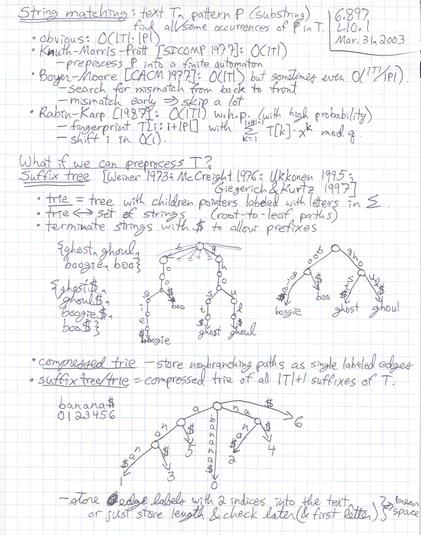 String matching: text T, pattern P (substring)
find all/some occurrences of P in T.
6.897
L10.1
Mar. 31, 2003
• obvious: O(|T|·|P|)
• Knuth-Morris-Pratt [SICOMP 1977]: O(|T|)
– preprocess P into a finite automaton
• Boyer-Moore [CACM 1977]: O(|T|) but sometimes even O(|T|/|P|).
– search for mismatch from back to front
– mismatch early ⇒ skip a lot
• Rabin-Karp [1987]: O(|T|) w.h.p. (with high probability)
– fingerprint T[i:i+|P|] with Σ T[k]·x^k mod q.
– shift i in O(1).
What if we can preprocess T?
Suffix tree [Weiner 1973; McCreight 1976; Ukkonen 1995;
Giegerich & Kurtz 1997]
• trie = tree with children pointers labeled with letters in Σ.
• trie ↔ set of strings (root-to-leaf paths)
• terminate strings with $ to allow prefixes
{ghost, ghoul,
boogie, boo}
{ghost$,
ghoul$,
boogie$,
boo$}
boo
boogie
ghost ghoul
boogie
boo
ghost ghoul
• compressed trie – store nonbranching paths as single labeled edges
• suffix tree/trie = compressed trie of all |T|+1 suffixes of T.
banana$
0123456
a
na
na
$
banana$
1
3
5
0
2
4
6
– store edge labels with 2 indices into the text,
or just store length & check later (& first letter)
} ⇒ linear
space